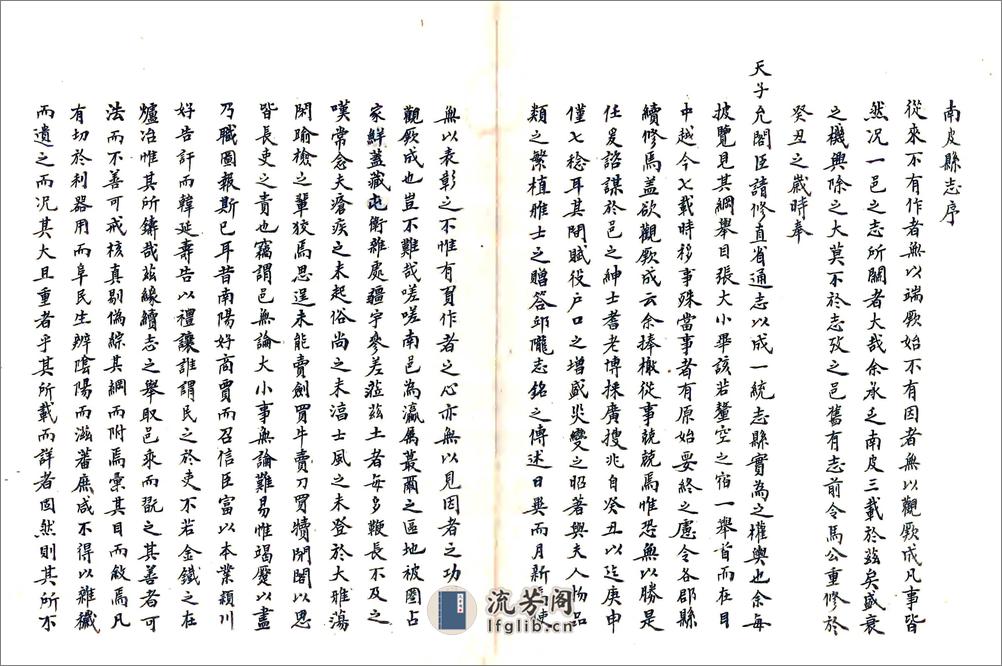 南皮縣志序
從來不有作者無以端厥始不有因者無以觀厥成凡事皆
然況一邑之志所關者大哉余承乏南皮三載於茲矣盛衰
之機興除之大莫不於志攷之邑舊有志前令馬公重修於
癸丑之歲時奉
天子允閣臣請修直省通志以成一統志縣實為之權輿也余每
披覽見其綱舉目張大小畢該若鏊空之宿一舉首而在目
中越今七載時移事殊當事者有原始要終之慮令各郡縣
續修焉蓋欲觀厥成云余捧檄從事兢兢焉惟恐無以勝是
任爰諮謀於邑之紳士耆老博採廣搜兆自癸丑以迄庚申
僅七稔耳其間賦役户口之增盛災變之昭著與夫人物品
類之繁植雅士之贈答邱隴志銘之傳述日異而月新使
無以表彰之不惟有負作者之心亦無以見因者之功
觀厥成也豈不難哉嗟嗟南邑為瀛属蕞爾之區地被圈占
家鮮蓋藏屯衛雜處疆宇參差蒞茲土者每多鞭長不及之
嘆常念夫瘡疾之未起俗尚之未湻士風之未登於大雅蕩
閑瑜檢之輩狡焉思逞未能賣劍買牛賣刀買犢閑閣以思
皆長吏之責也竊謂邑無論大小事無論難易惟竭蹷以盡
乃職圖報斯已耳昔南陽好商賈而召信臣富以本業潁川
好告訐而韓延壽告以禮讓誰謂民之於吏不若金鐵之在
爐冶惟其所鑄哉茲緣續志之舉取邑乘而翫之其善者可
法而不善可戒核真别偽綜其綱而附焉彙其目而敘焉凡
有切於利器用而阜民生辨陰陽而滋蕃庶咸不得以雜穢
而遺之而況其大且重者乎其所載而詳者固然則其所不
流芳阁
lfglib.cn